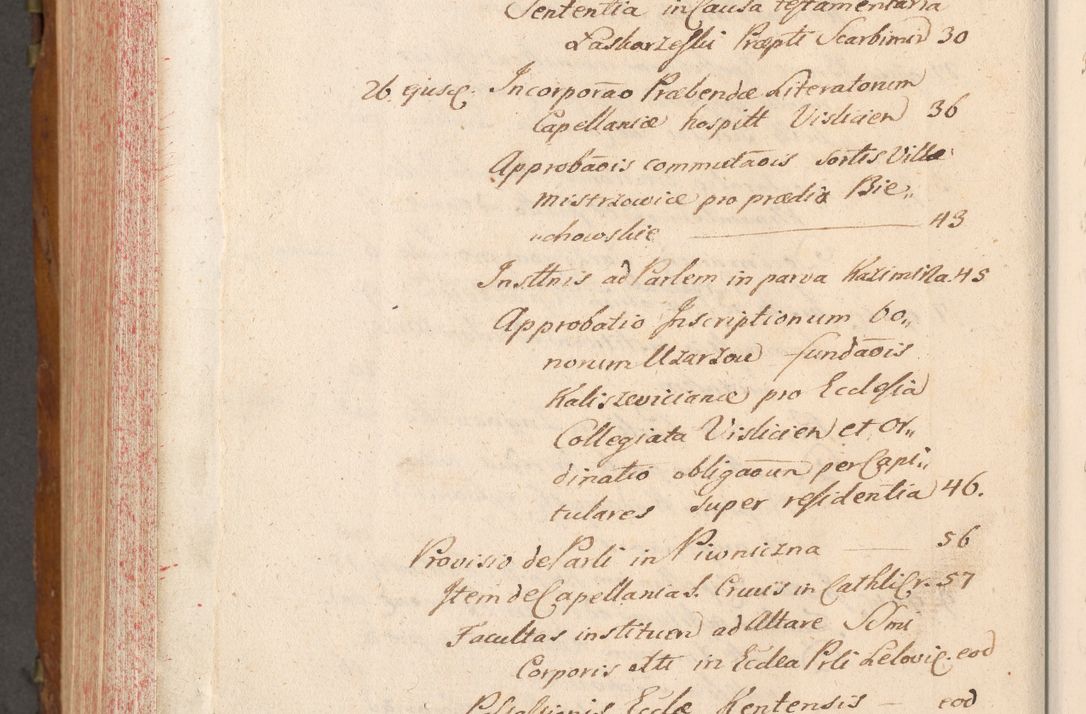 Sententia in Causa testamentaria
Laskarzesski Præpti Scarbimir 30
26 ejusq. Incorporao Præbendæ Literatorum
Capellaniæ hospitt Vislicien 36
Approbaois commutaois sortis Villæ
Mistrzowice pro prædio Bie„
„chowskie 43
Insttnis ad Parlem in parva Kazimirza. 45
Approbatio Inscriptionum bo„
norum Uzarzow fundaois
Kaliszewicianæ pro Ecclesia
Collegiata Vislicien et Or„
dinatio obligaoum per Capi„
tulares super residentia 46.
Provisio de Parli in Piwniczna 56
Item de Capellania S. Crucis in Cathli Cr. 57
Facultas instituen ad Altare SSmi
Corporis Xtti in Ecclea Prli Lelovic. eod
Ecclæ Kentensis — eod